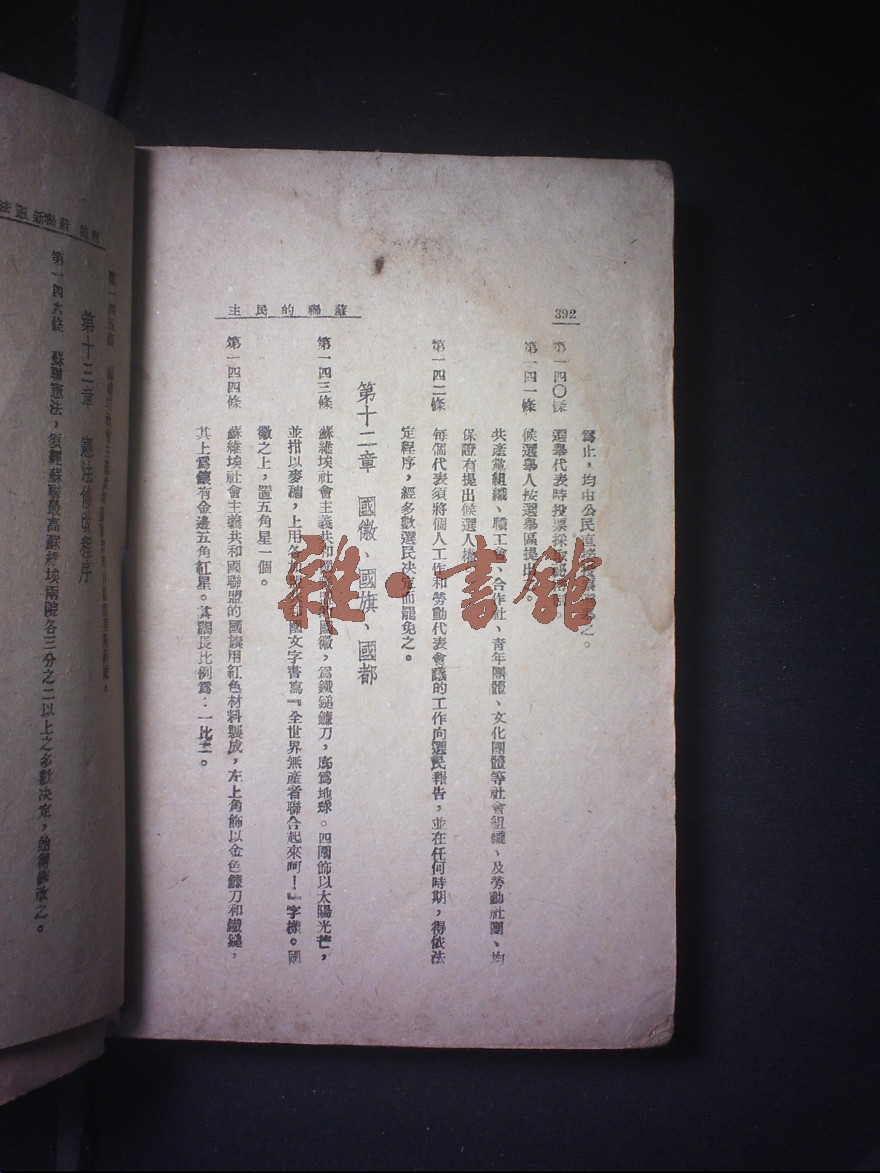 392
蘇聯的民主
爲止，均由公民直接選舉之。
第一四〇條 選舉代表時投票採取
第一四一條 候選舉人按選舉區提出。
共產黨組織、職工會、合作社、青年團體、文化團體等社會組織、及勞動社團、均
保證有提出候選人權
第一四二條 每個代表須將個人工作和勞動代表會議的工作向選民報告，並在任何時期，得依法
定程序，經多數選民決定而罷免之。
第十二章 國徽、國旗、國都
第一四三條 蘇維埃社會主義共和國國徽，爲鐵鎚鐮刀，底爲地球。四圍飾以太陽光芒，
並措以麥穗，上用各國文字書寫『全世界無產者聯合起來呵！』字樣。國
徽之上，置五角星一個。
第一四四條 蘇維埃社會主義共和國聯盟的國旗用紅色材料製成，左上角飾以金色鐮刀和鐵鎚，
其上爲鑲有金邊五角紅星。其闊長比例爲：一比二。
蘇聯新憲法
第一四五條
第十三章 憲法修改程序
第一四六條 蘇聯憲法，須經蘇聯最高蘇維埃兩院各三分之二以上之多數決定，始得修改之。
雜·書館